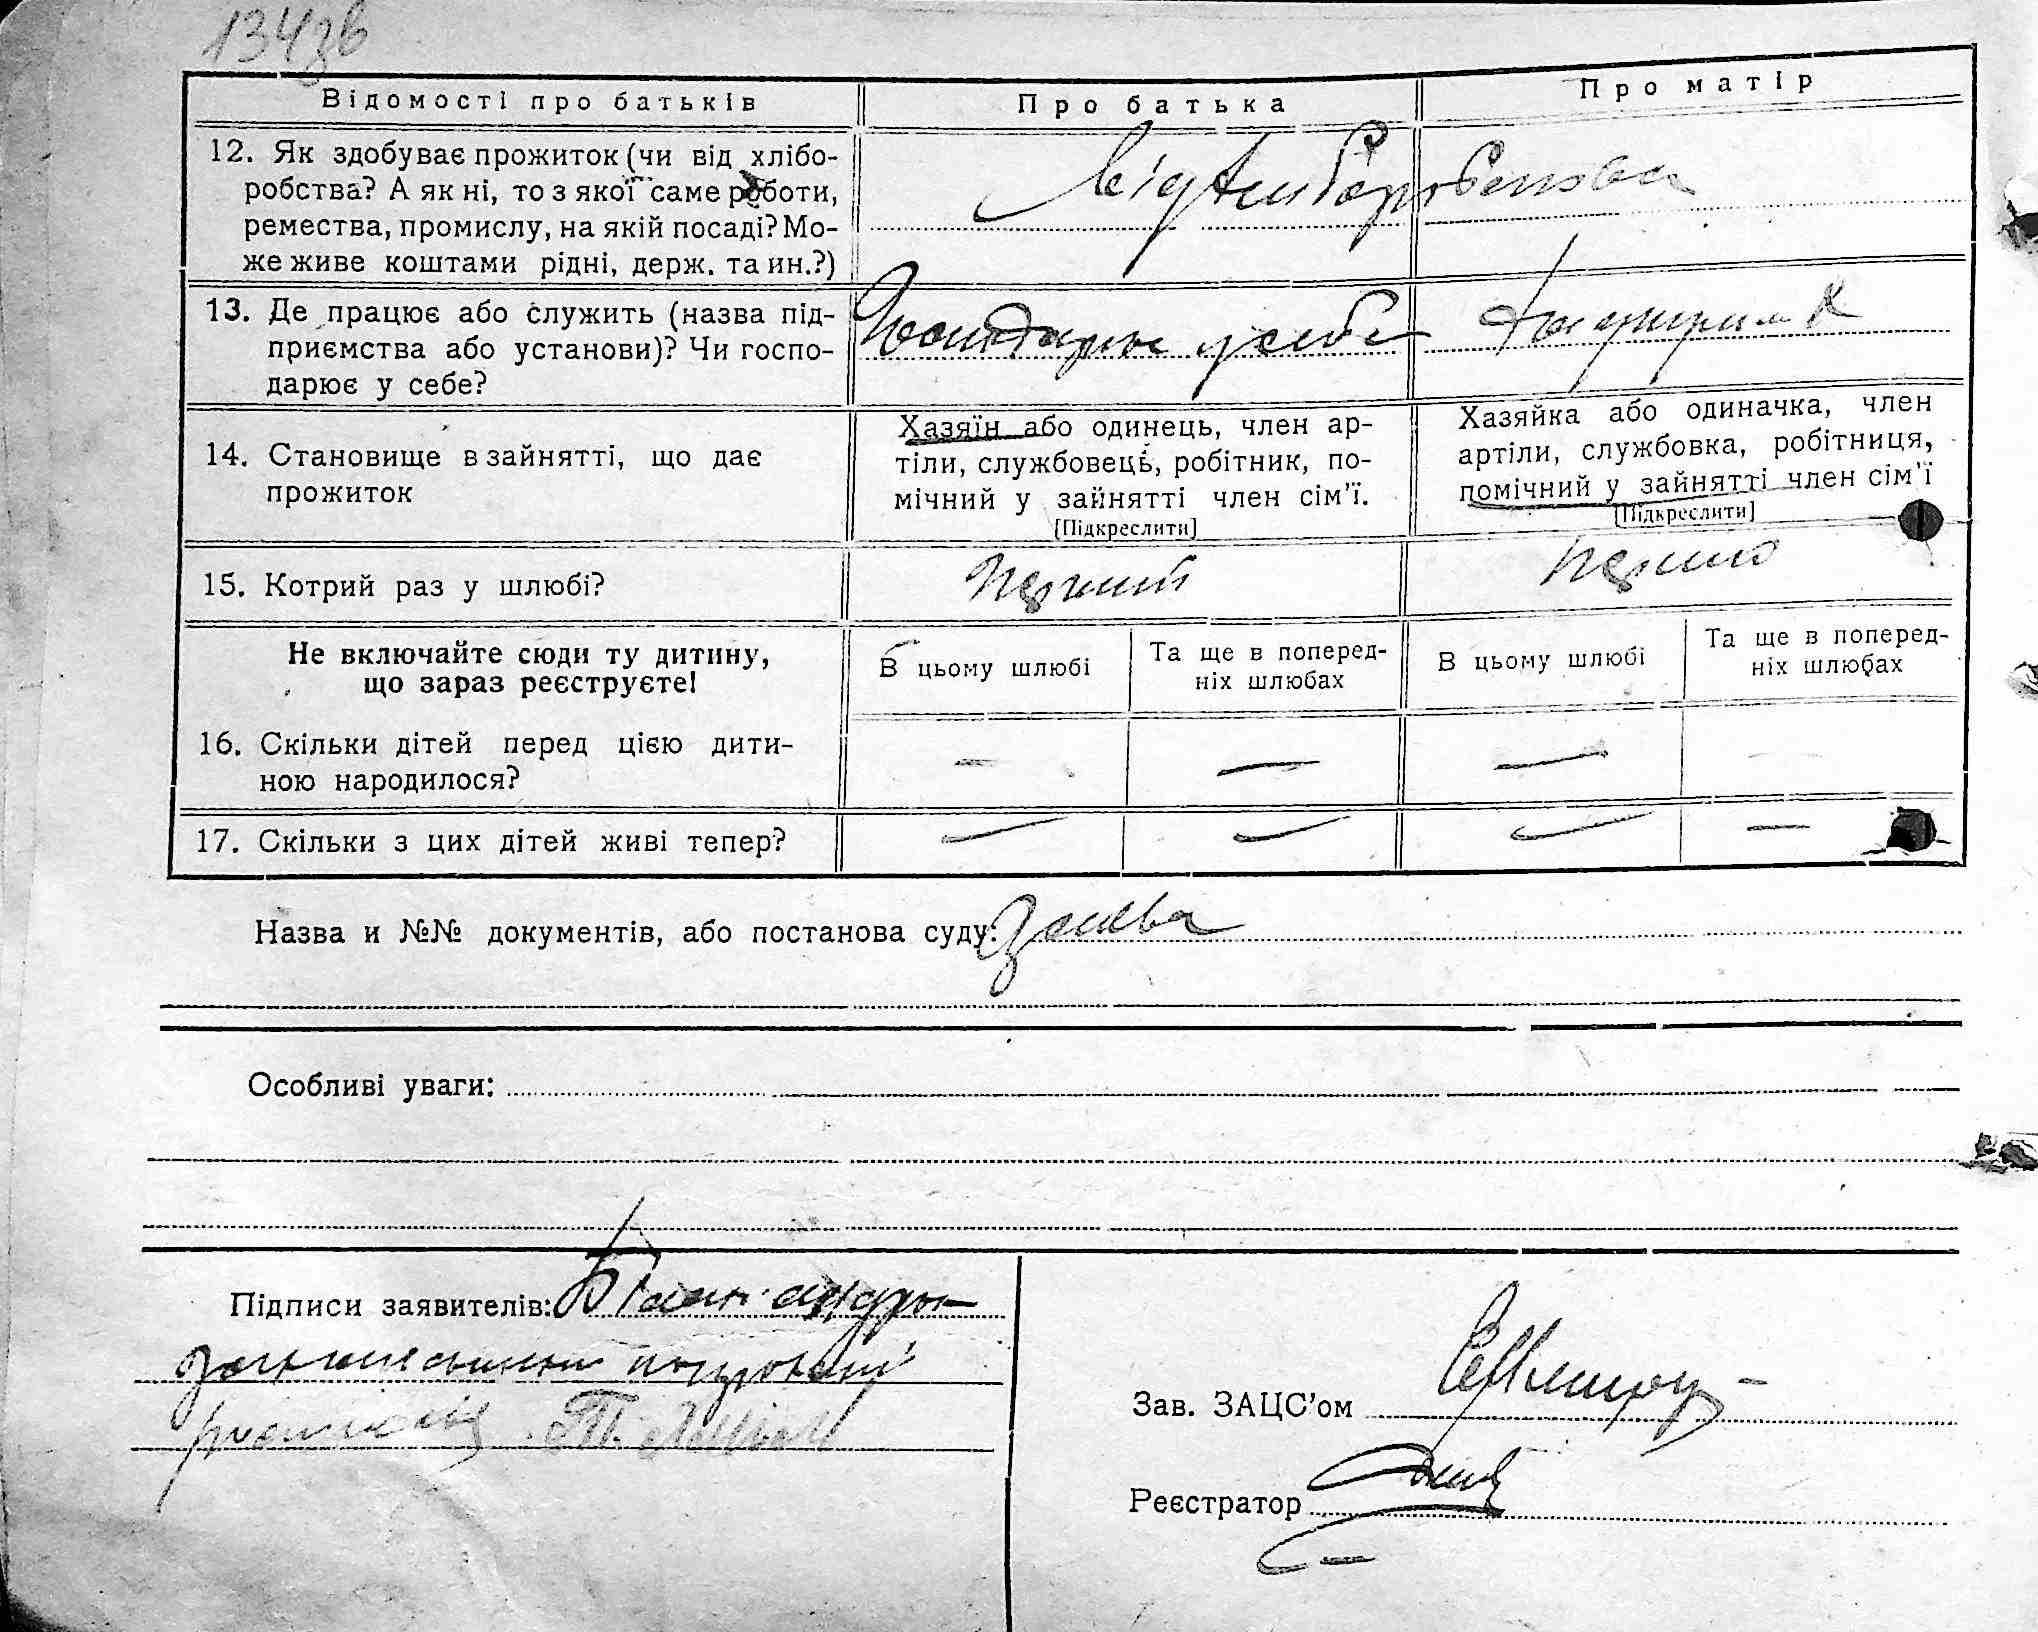 134зв
Відомості про батьків
Про батька
Про матір
12. Як здобуває прожиток (чи від хлібо-
робства? А як ні, то з якої саме роботи,
ремества, промислу, на якій посаді? Мо-
же живе коштами рідні, держ. та ин.?)
від хліборобства
13. Де працює або служить (назва під-
приємства або установи)? Чи госпо-
дарює у себе?
Господарює у себе
14. Становище в зайнятті, що дає
прожиток
Хазяїн або одинець, член ар-
тіли, службовець, робітник, по-
мічний у зайнятті член сім'ї.
[Підкреслити]
Хазяйка або одиначка, член
артіли, службовка, робітниця,
помічний у зайнятті член сім'ї
[Підкреслити]
15. Котрий раз у шлюбі?
Перший
Перший
Не включайте сюди ту дитину,
що зараз реєструєте!
В цьому шлюбі
Та ще в поперед-
ніх шлюбах
В цьому шлюбі
Та ще в поперед-
ніх шлюбах
16. Скільки дітей перед цією дити-
ною народилося?
— — — —
17. Скільки з цих дітей живі тепер?
— — — —
Назва и №№ документів, або постанова суду: Заява
Особливі уваги:
Підписи заявителів:
Зав. ЗАЦС'ом
Реєстратор